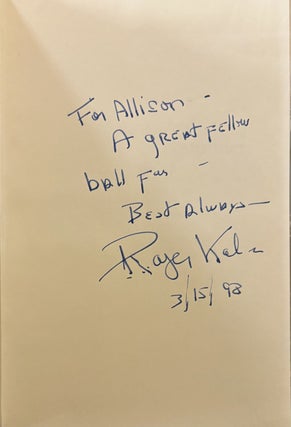 For Allison -
A great fellow
ball fan -
Best Always—
Roger Kahn
3/15/93